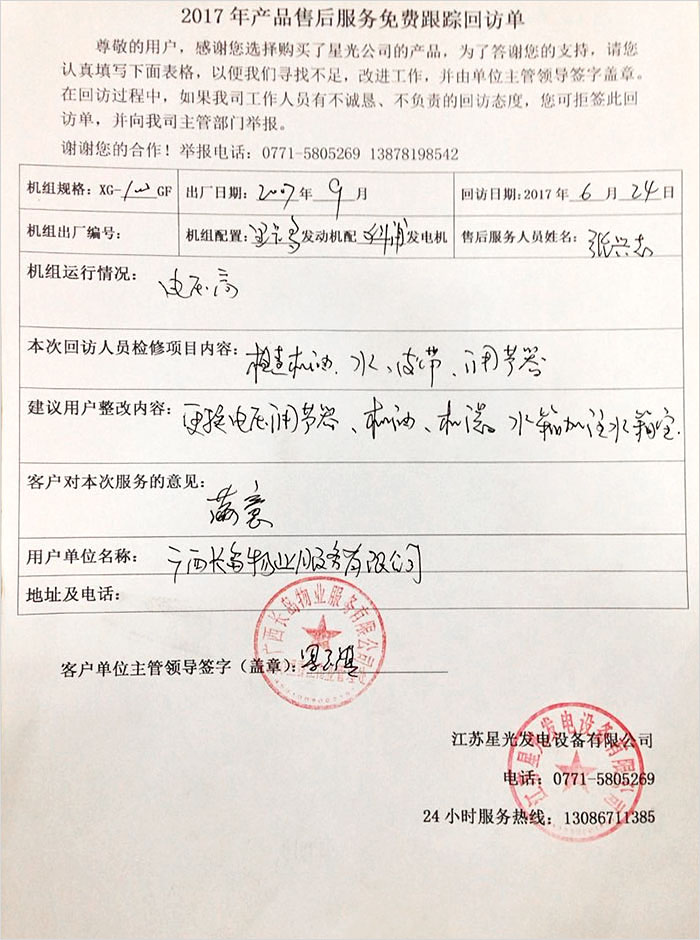 2017年产品售后服务免费跟踪回访单
尊敬的用户，感谢您选择购买了星光公司的产品，为了答谢您的支持，请您
认真填写下面表格，以便我们寻找不足，改进工作，并由单位主管领导签字盖章。
在回访过程中，如果我司工作人员有不诚恳、不负责的回访态度，您可拒签此回
访单，并向我司主管部门举报。
谢谢您的合作！举报电话：0771-5805269 13878198542
机组规格：XG-100GF 出厂日期：2007年9月 回访日期：2017年6月24日
机组出厂编号： 机组配置：发动机配发电机 售后服务人员姓名：张兴志
机组运行情况：电压高
本次回访人员检修项目内容：检查机油、水、皮带、调节器
建议用户整改内容：更换电压调节器、机油、机滤。水箱加注水箱宝.
客户对本次服务的意见：满意
用户单位名称：广西长岛物业服务有限公司
地址及电话：
广西长岛物业服务有限公司
客户单位主管领导签字（盖章）：
江苏星光发电设备有限公司
江苏星光发电设备有限公司
电话：0771-5805269
24小时服务热线：13086711385